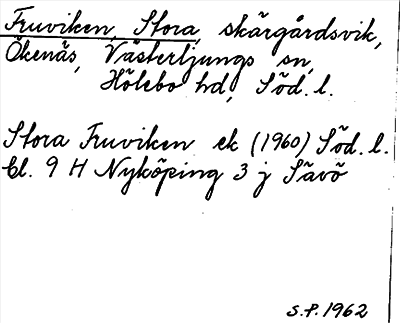 Fruviken, Stora, skärgårdsvik,
Ökenäs, Västerljungs sn,
Hölebo hd, Söd. l.
Stora Fruviken ek (1960) Söd. l.
bl. 9 H Nyköping 3 j Sävö
S.P. 1962